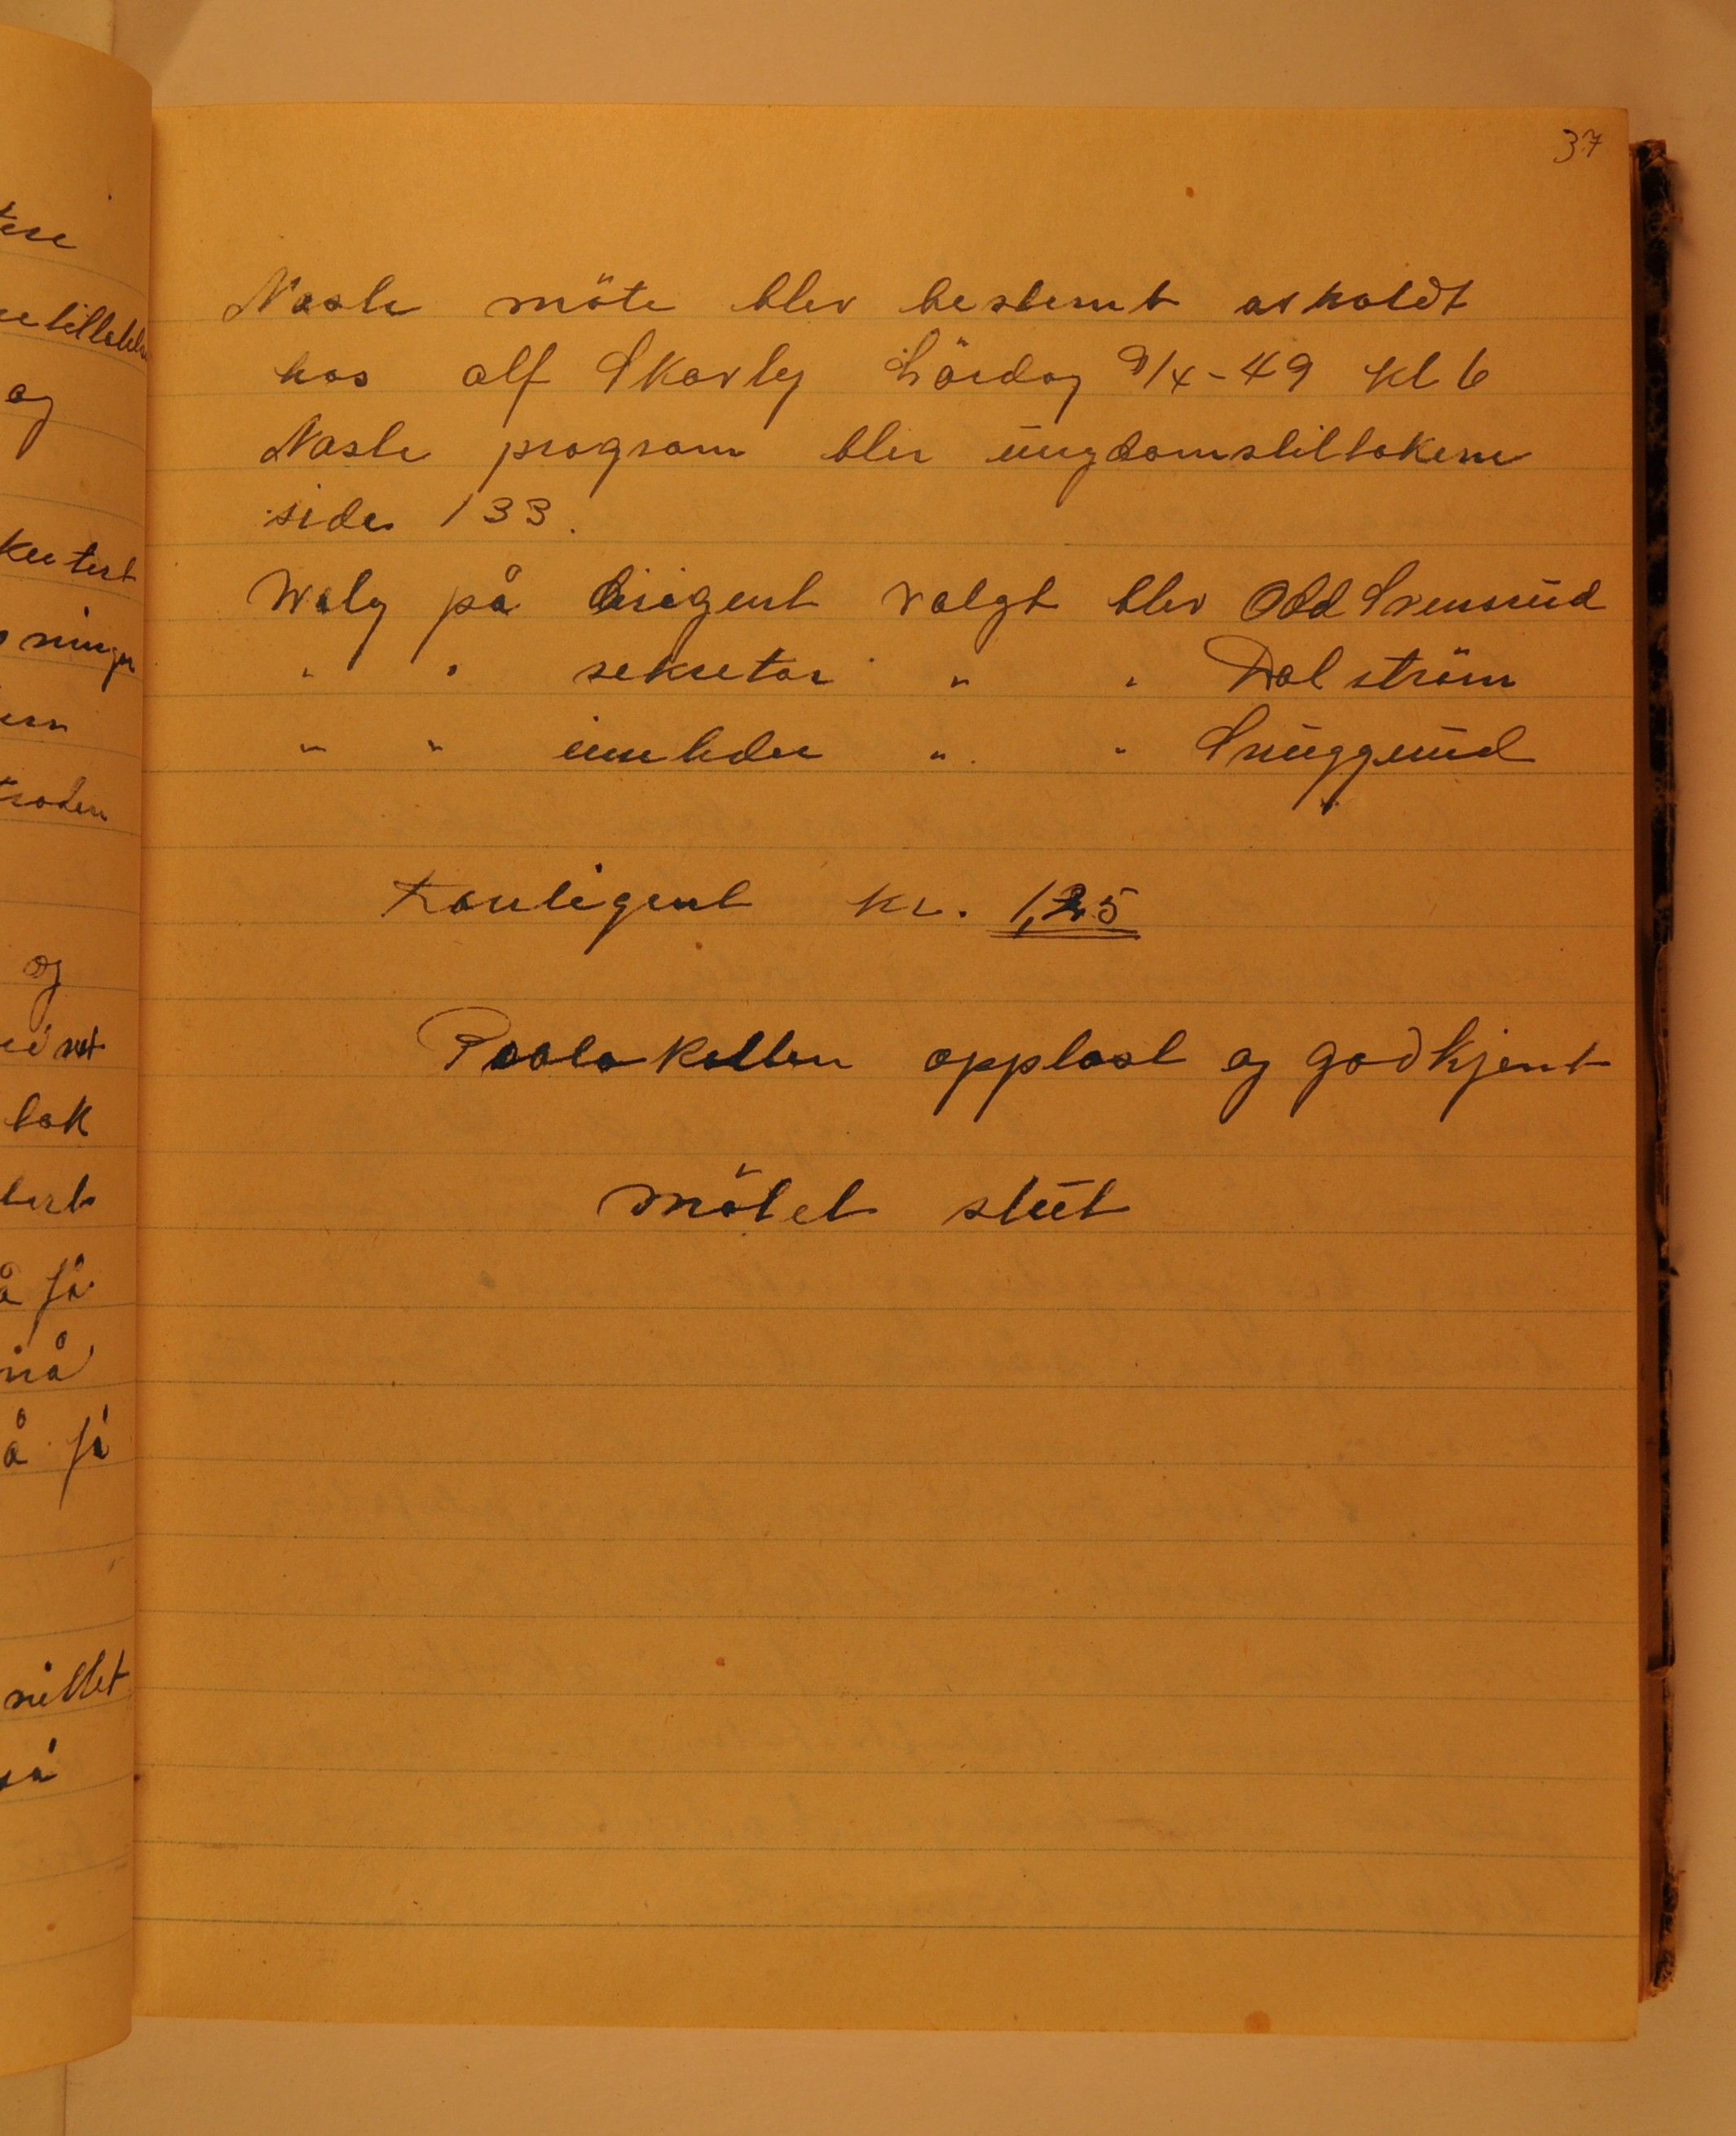 37
Naste möte blev bestemt avholdt
hos alf Skarby Lördag 9/4-49 kl 6
Naste program blir ungdomstiltakene
side 133.
Walg på dirigent valgt blev Odd Svensrud
" " sekretar " " Dalström
" " innleder " " Snuggerud
Kontigent kr. 1,25
Protokollen opplast og godkjent
mötet slut
og
kutert
og
tak
å få
nå
å få